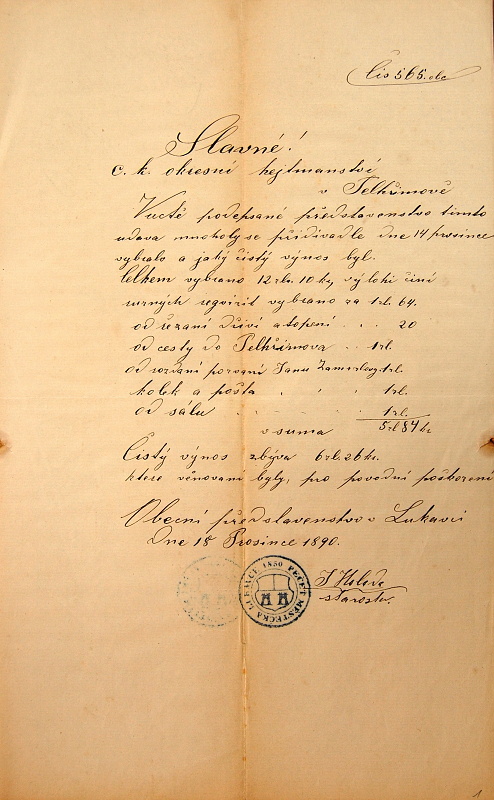 Čís 565. obc
Slavné!
c. k. okresní hejtmanství
v Pelhřimově
Vuctě podepsané představenstvo timto
udava mnoholy se při divadle dne 14 prosince
vybralo a jaký čistý výnos byl.
Celkem vybrano 12 zl. 10 kr, výlohi činí
rurných regvizit vybrano za 1 zl. 64.
od řezaní dříví a topení . . . 20
od cesty do Pelhřimova . . 1 zl.
od rozdání pozvaní Janu 1 zl.
kolek a pošta . . . 1 zl.
od sálu . . . 1 zl.
v suma 5 zl 84 kr
Čistý výnos zbýva 6 zl. 26 kr.
ktere věnovaní byly, pro povodní poškození
Obecní představenstvo v Lukavci
Dne 18 Prosince 1890.
PEČEŤ MĚSTEČKA LUKAVCE 1850
starosta.
1